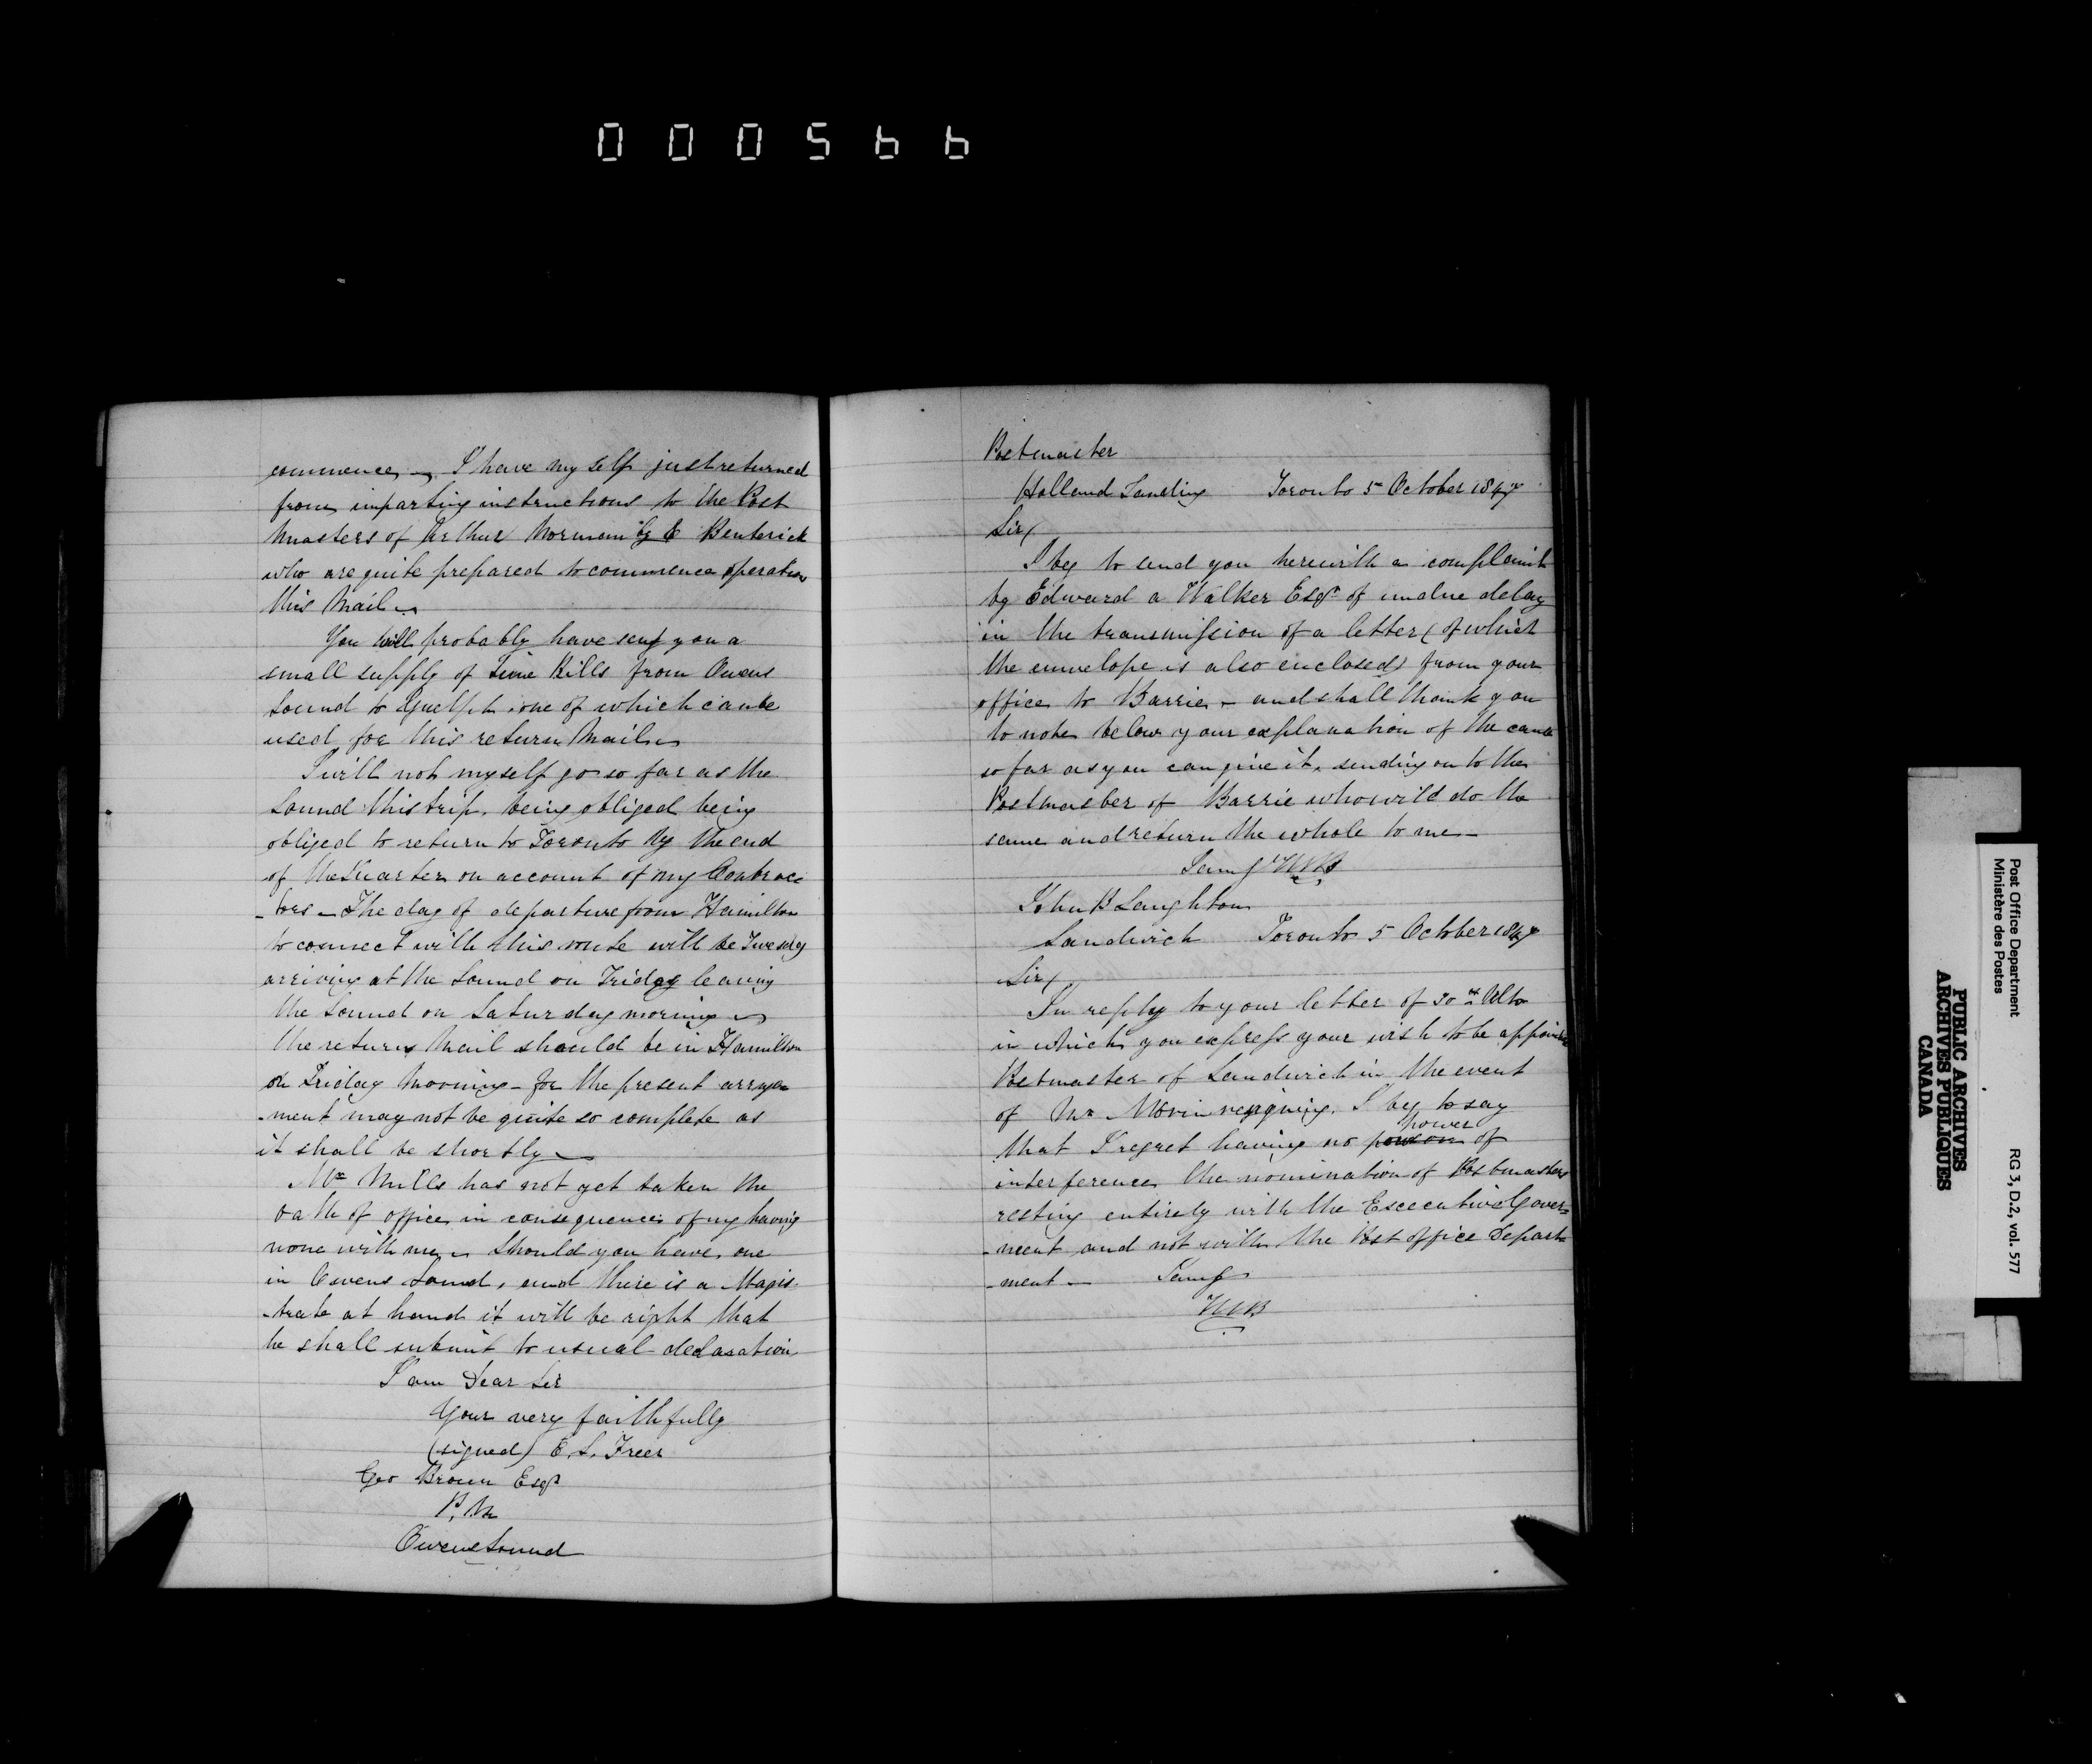 000566
commence, — I have myself just returned
from imparting instructions to the Post
Masters of Arthur Normanby & Bentinck
who are quite prepared to commence operations
this Mail —
You will probably have sent you a
small supply of Time Bills from Owens
Sound to Guelph, one of which can be
used for this return Mail —
I will not myself go so far as the
Sound this trip, being obliged being
obliged to return to Toronto by the end
of the Quarter on account of my Contrac
-tors — The day of departure from Hamilton
to connect with this route will be Tuesday
arriving at the Sound on Friday leaving
the Sound on Saturday morning —
the return Mail should be in Hamilton
on Friday Morning — for the present arrange
-ment may not be quite so complete as
it shall be shortly —
Mr Mills has not yet taken the
oath of office, in consequence of my having
none with me — Should you have one
in Owens Sound, and there is a Magis-
-trate at hand it will be right that
he shall submit to usual declaration
I am Dear Sir
Your very faithfully
(signed) E. S. Freer
Geo Brown Esqr
P. M
Owens Sound
Postmaster
Holland Landing Toronto 5 October 1847
Sir
I beg to send you herewith a complaint
by Edward a Walker Esqr of undue delay
in the transmission of a letter (of which
the envelope is also enclosed) from your
office to Barrie — and shall thank you
to note below your explanation of the cause
so far as you can give it, sending on to the
Postmaster of Barrie who will do the
same and return the whole to me —
John B Laughton
Sandwich Toronto 5 October 1847
Sir
In reply to your letter of 30th Ulto
in which you express your wish to be appointed
Postmaster of Sandwich in the event
of Mr Morin resigning, I beg to say
power
that I regret having no of
interference, the nomination of Postmasters
resting entirely with the Executive Govern=
-ment and not with the Post Office Depart
-ment —
Post Office Department
Ministère des Postes
RG 3, D.2, vol. 577
PUBLIC ARCHIVES
ARCHIVES PUBLIQUES
CANADA